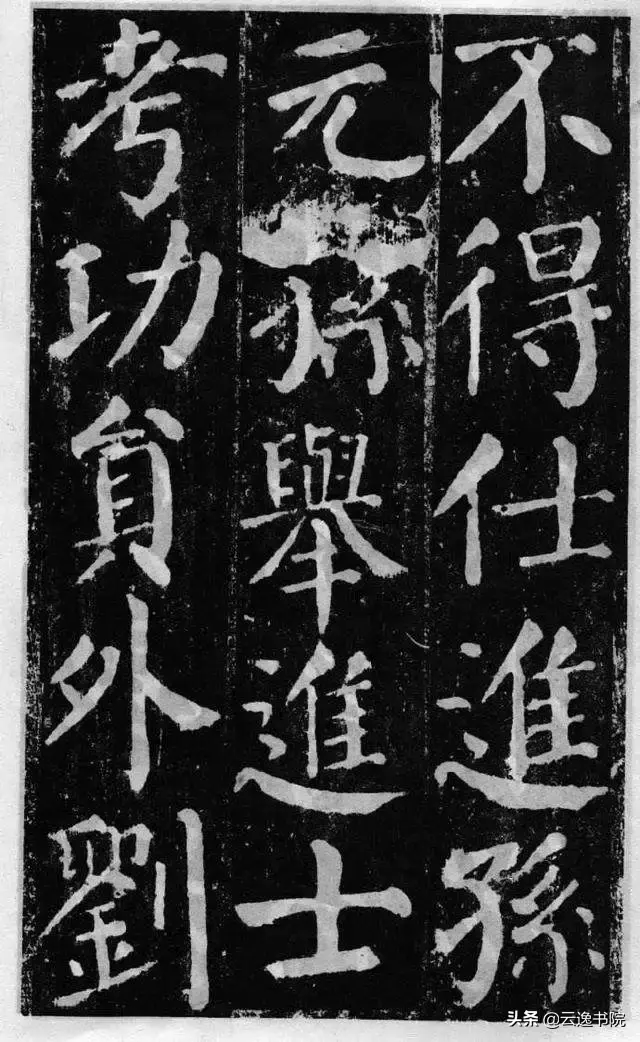 不得仕進孫
元孫舉進士
考功貟外劉
头条 @云逸书院